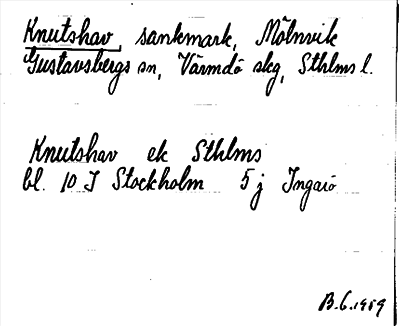 Knutshav, sankmark, Mölnvik
Gustavsbergs sn, Värmdö skg, Sthlms l.
Knutshav ek Sthlms
bl. 10 I Stockholm 5 j Ingarö
B.G. 1959